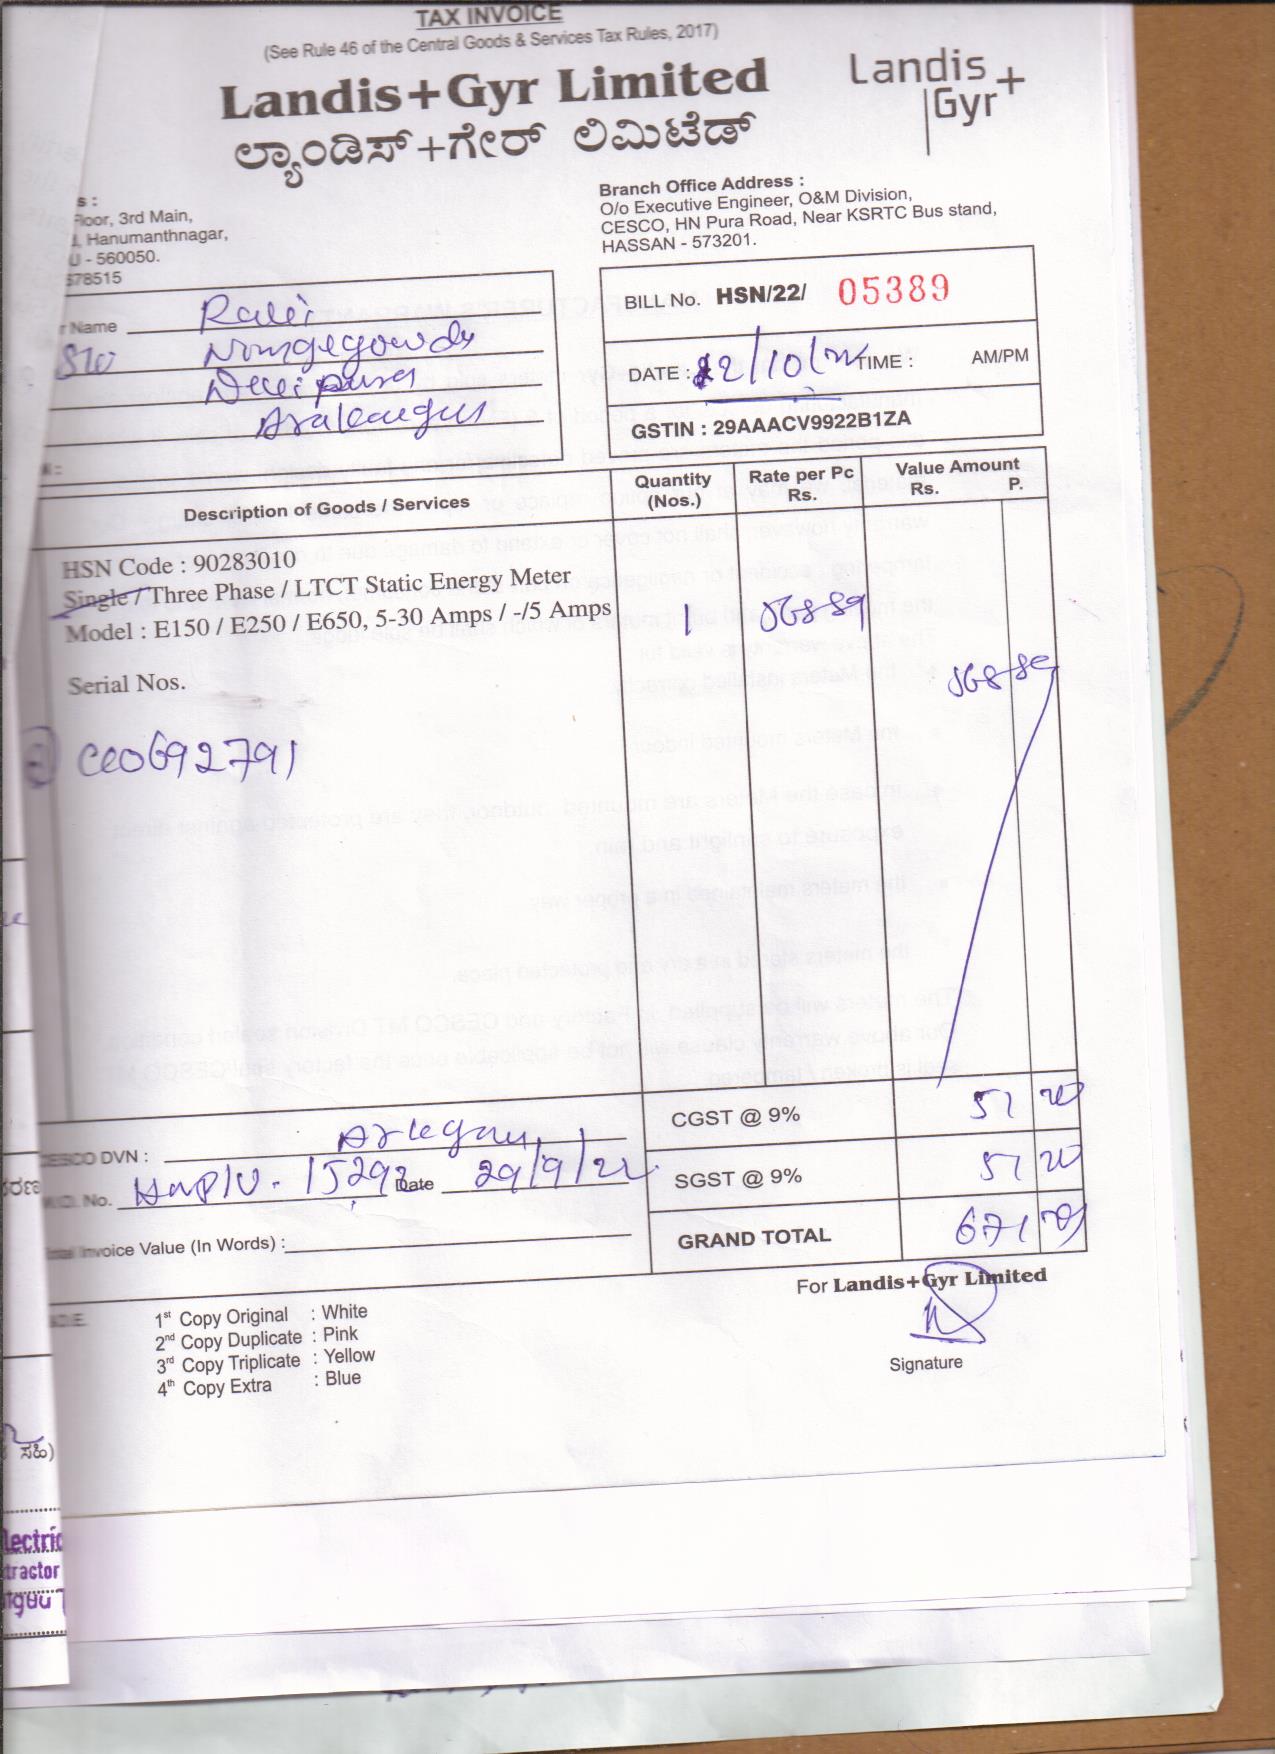 TAX INVOICE
(See Rule 46 of the Central Goods & Services Tax Rules, 2017)
Landis+Gyr Limited
Landis+
Gyr
ಲ್ಯಾಂಡಿಸ್+ಗೇರ್ ಲಿಮಿಟೆಡ್
s :
Floor, 3rd Main,
Hanumanthnagar,
U - 560050.
578515
Branch Office Address :
O/o Executive Engineer, O&M Division,
CESCO, HN Pura Road, Near KSRTC Bus stand,
HASSAN - 573201.
r Name Ravi
S/o
BILL No. HSN/22/ 05389
DATE : 12/10/22 TIME : AM/PM
GSTIN : 29AAACV9922B1ZA
Description of Goods / Services
Quantity (Nos.)
Rate per Pc Rs.
Value Amount Rs. P.
HSN Code : 90283010
Single / Three Phase / LTCT Static Energy Meter
Model : E150 / E250 / E650, 5-30 Amps / -/5 Amps
1 568 89
568 89
Serial Nos.
CC0692791
CGST @ 9% 51 20
SGST @ 9% 51 20
GRAND TOTAL 671 29
CESCO DVN :
W.O. No. 15292 Date 29/9/22
Total Invoice Value (In Words) :
For Landis+Gyr Limited
Signature
1st Copy Original : White
2nd Copy Duplicate : Pink
3rd Copy Triplicate : Yellow
4th Copy Extra : Blue
ಸಹಿ)
lectric
tractor